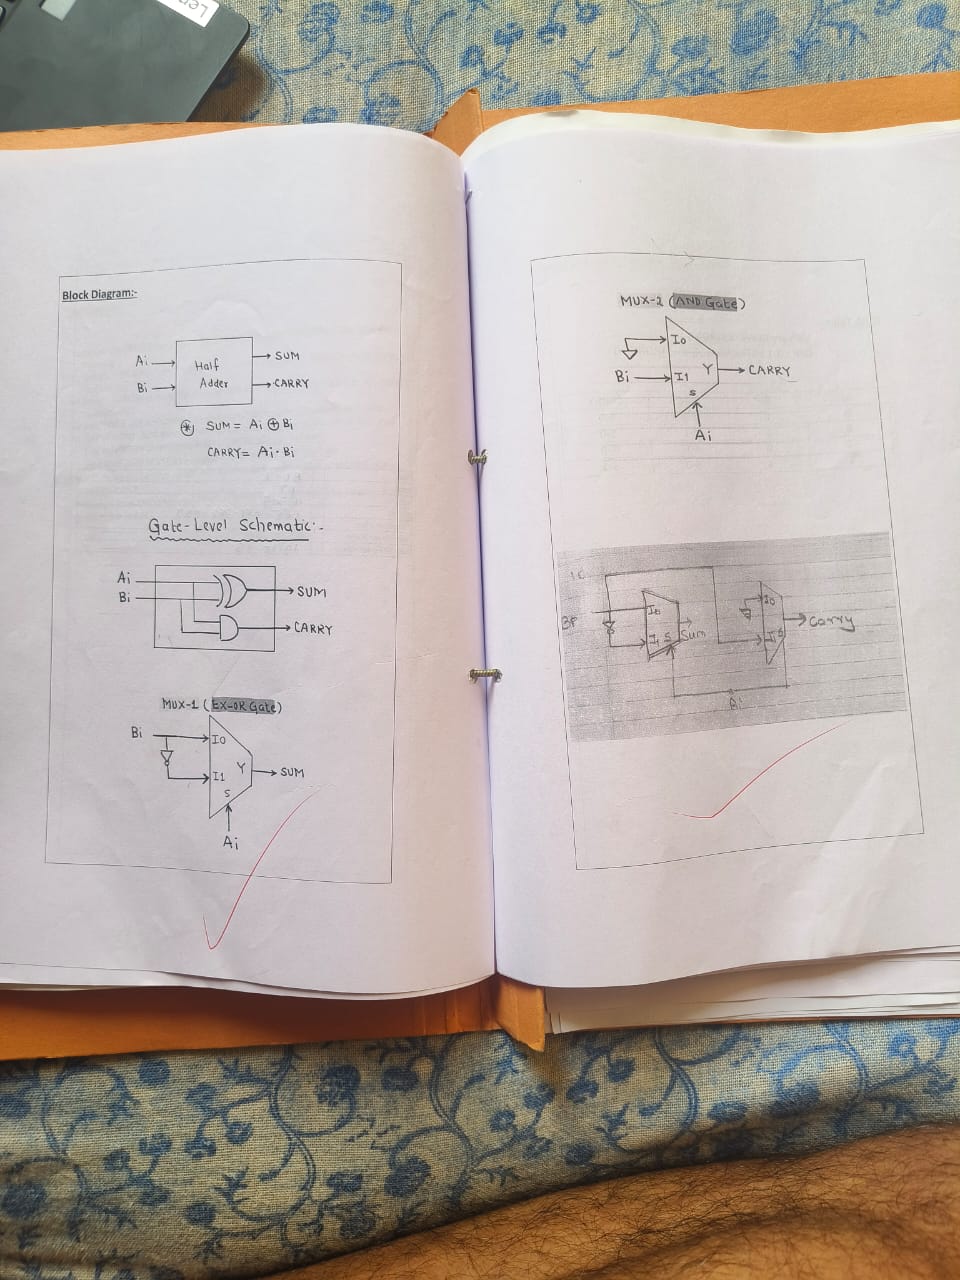 Len
Block Diagram:-
Ai
Bi
Half
Adder
SUM
CARRY
⊛ SUM = Ai ⊕ Bi
CARRY = Ai · Bi
Gate-Level Schematic:-
Ai
Bi
SUM
CARRY
MUX-1 (EX-OR Gate)
Bi
I0
I1
Y
S
SUM
Ai
MUX-2 (AND Gate)
I0
Bi
I1
Y
S
CARRY
Ai
I0
I1 S
Sum
I0
I1 S
Carry
Ai